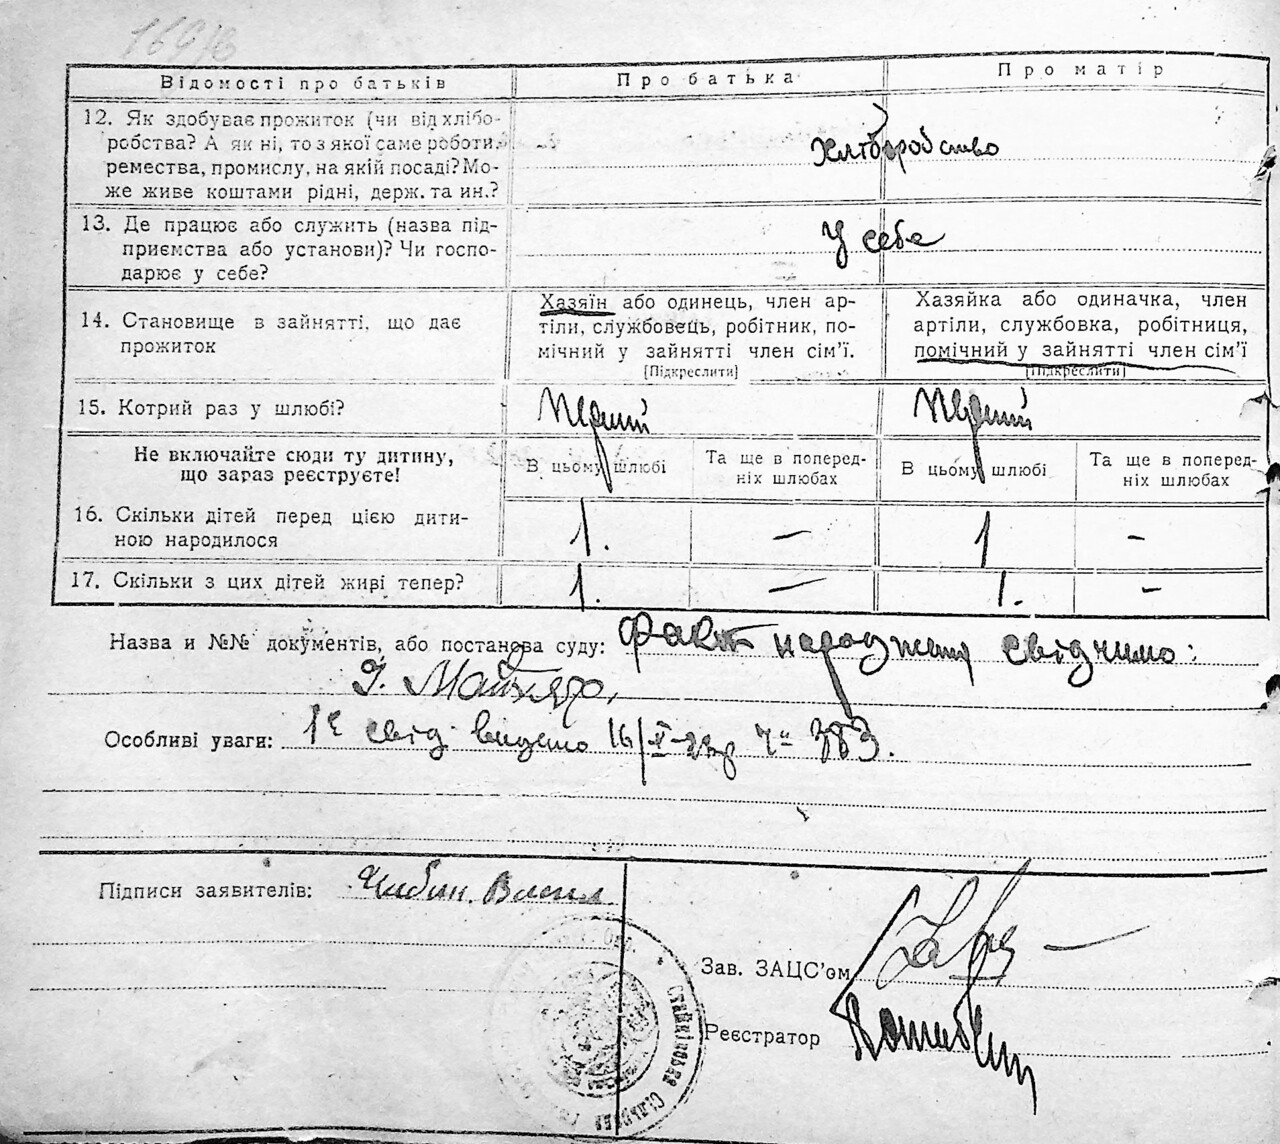 169/в
Відомості про батьків
Про батька
Про матір
12. Як здобуває прожиток (чи від хлібо-
робства? А як ні, то з якої саме роботи,
ремества, промислу, на якій посаді? Мо-
же живе коштами рідні, держ. та ин.?
Хліборобство
13. Де працює або служить (назва під-
приємства або установи)? Чи госпо-
дарює у себе?
У себе
14. Становище в зайнятті, що дає
прожиток
Хазяїн або одинець, член ар-
тіли, службовець, робітник, по-
мічний у зайнятті член сім’ї.
[Підкреслити]
Хазяйка або одиначка, член
артіли, службовка, робітниця,
помічний у зайнятті член сім’ї
[Підкреслити]
15. Котрий раз у шлюбі?
Перший
Перший
Не включайте сюди ту дитину,
що зараз реєструєте!
В цьому шлюбі
Та ще в поперед-
ніх шлюбах
В цьому шлюбі
Та ще в поперед-
ніх шлюбах
16. Скільки дітей перед цією дити-
ною народилося
1. — 1 —
17. Скільки з цих дітей живі тепер?
1. — 1. —
Назва и №№ документів, або постанова суду: Факт народження свідчимо:
Особливі уваги: 1е свід. видано 16/X- ч" 383.
Підписи заявителів:
Зав. ЗАЦС’ом
Реєстратор
Стайківська Сільрада